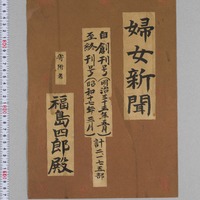 婦女新聞
自創刊号(明治三十三年五月)
至終刊号(昭和十七年三月)
計二一七五部
寄附者
福島四郎殿